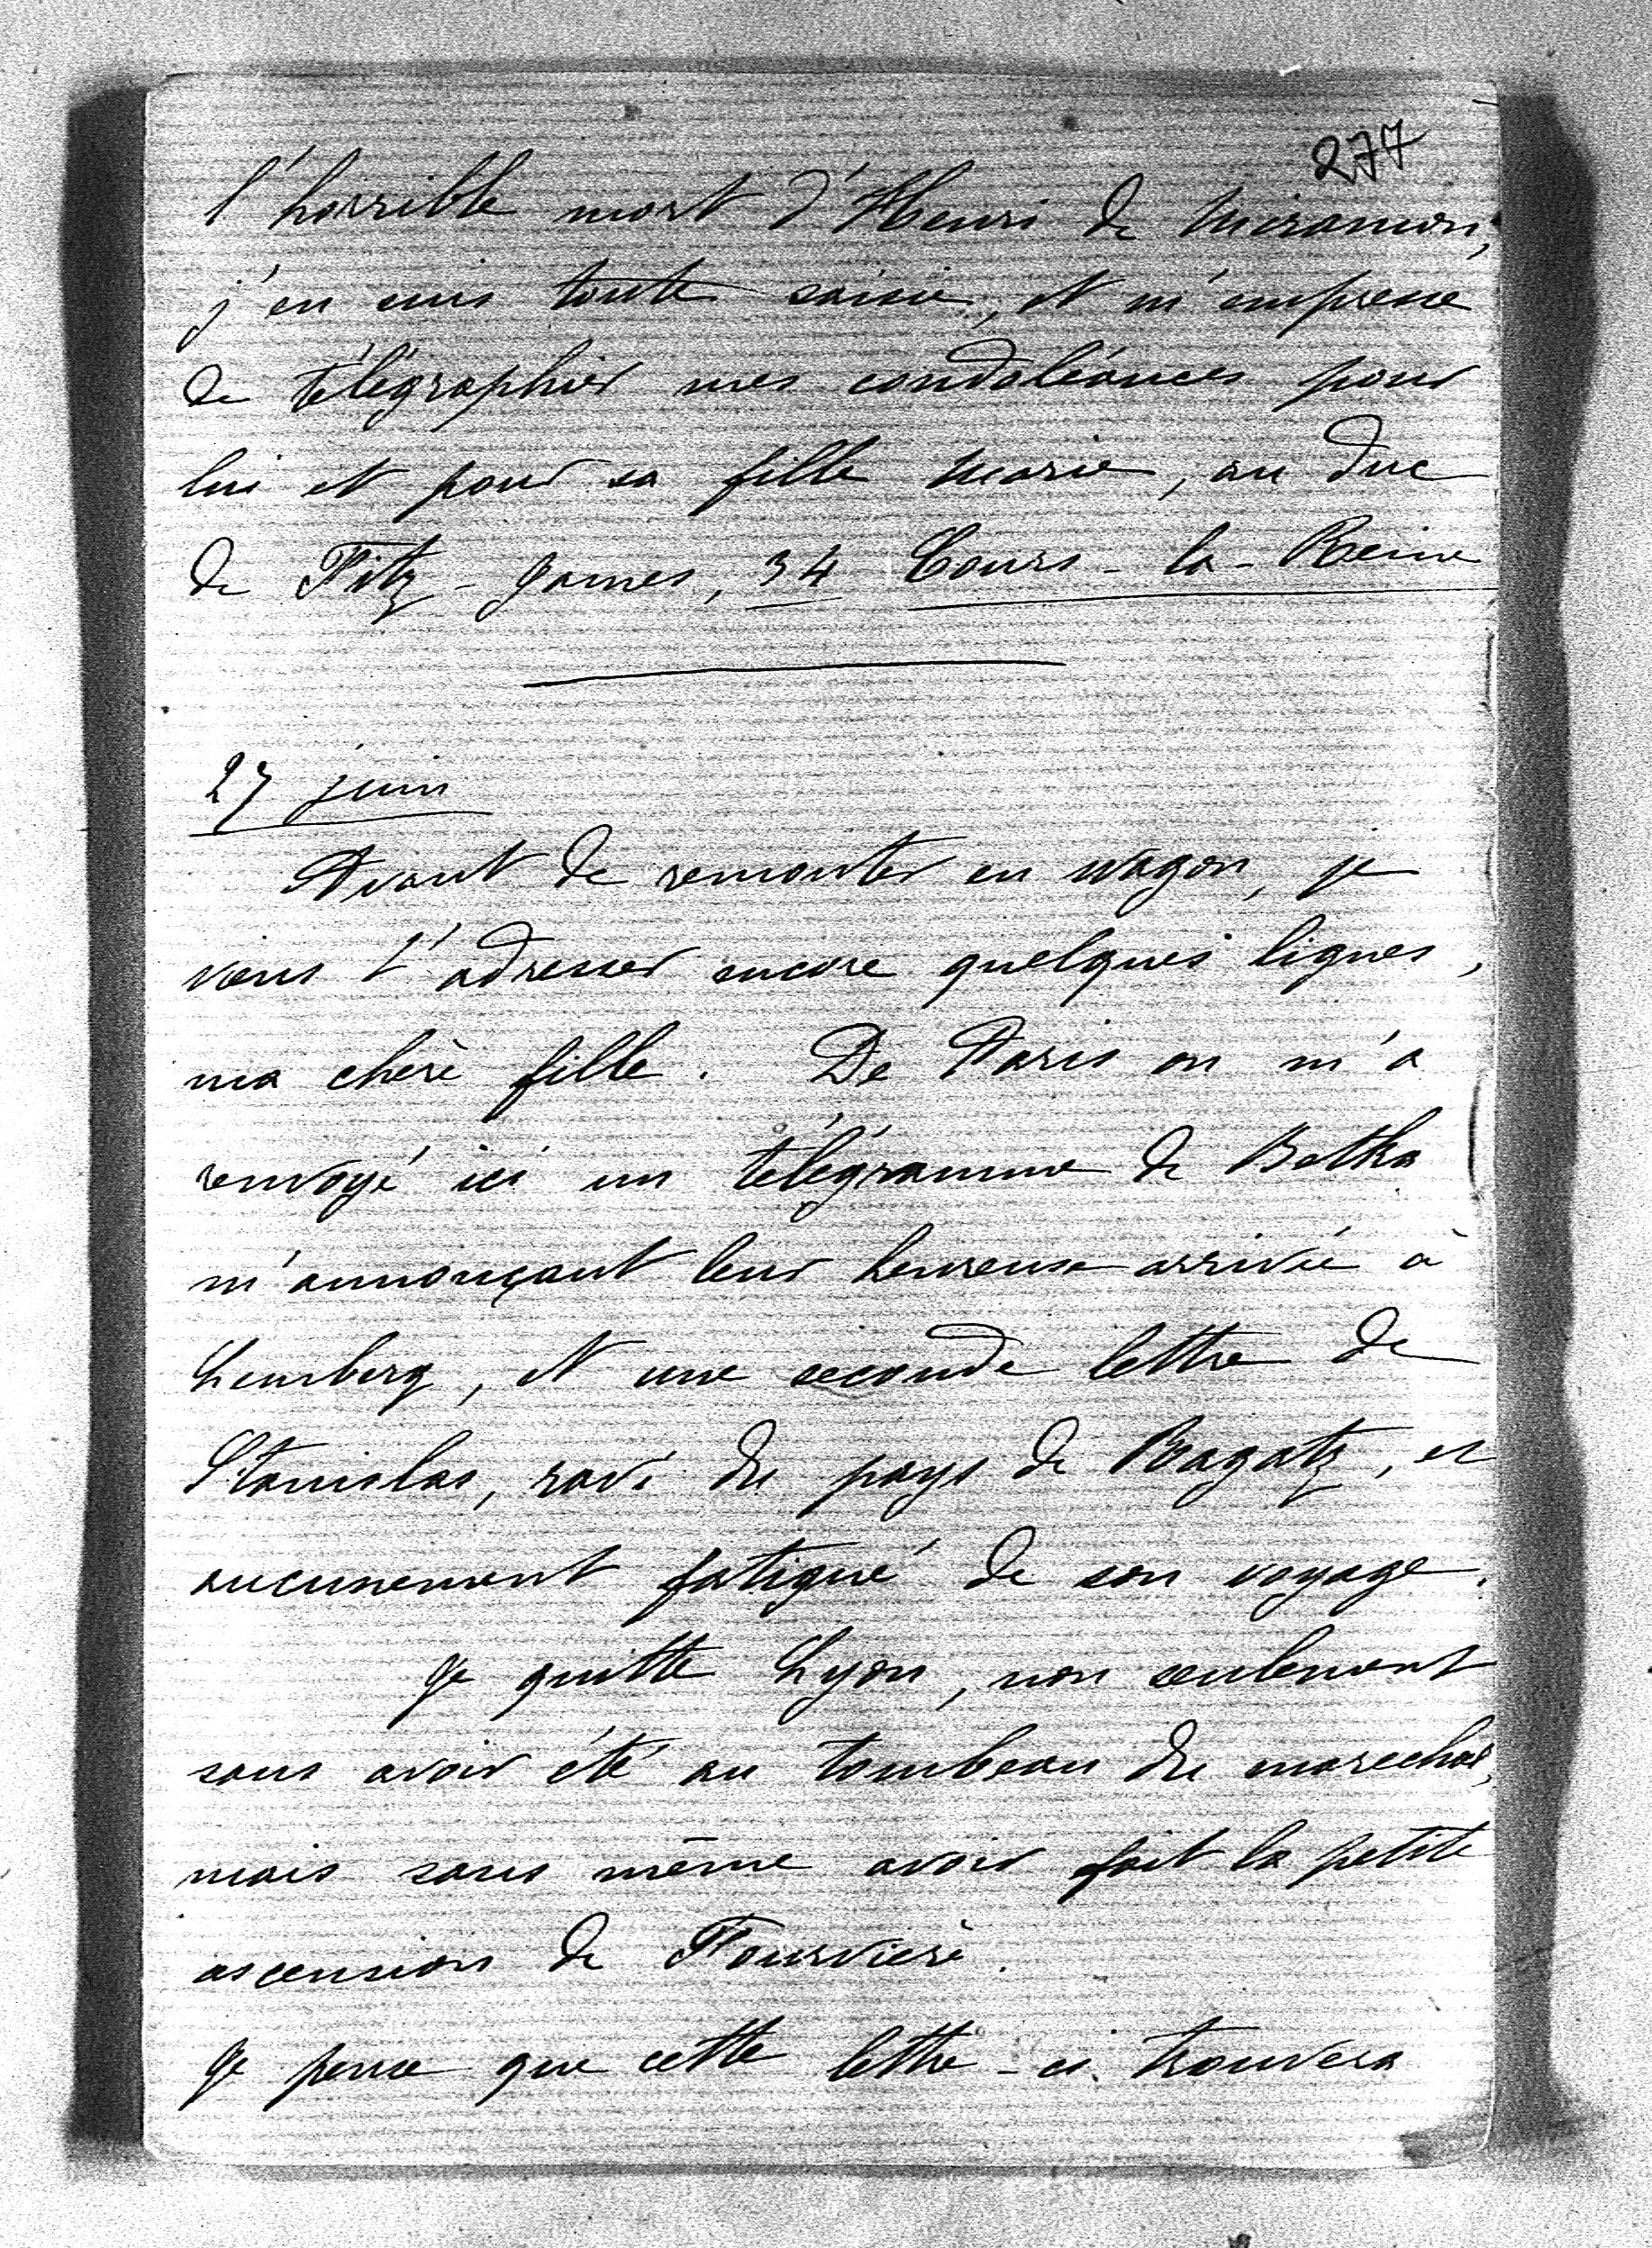 277
l'horrible mort d'Henri de Miramon,
j'en suis toute saisie, et m'empresse
de télégraphier mes condoléances pour
lui et pour sa fille Marie, au duc
de Fitz-James, 34 Cours-la-Reine
27 juin
Avant de remonter en wagon, je
viens t'adresser encore quelques lignes,
ma chère fille. De Paris on m'a
renvoyé ici un télégramme de Betka
m'annonçant leur heureuse arrivée à
Lemberg, et une seconde lettre de
Stanislas, ravi du pays de Ragatz, et
aucunement fatigué de son voyage.
Je quitte Lyon, non seulement
sans avoir été au tombeau du marechal,
mais sans même avoir fait la petite
ascension de Fourvière.
Je pense que cette lettre-ci trouvera